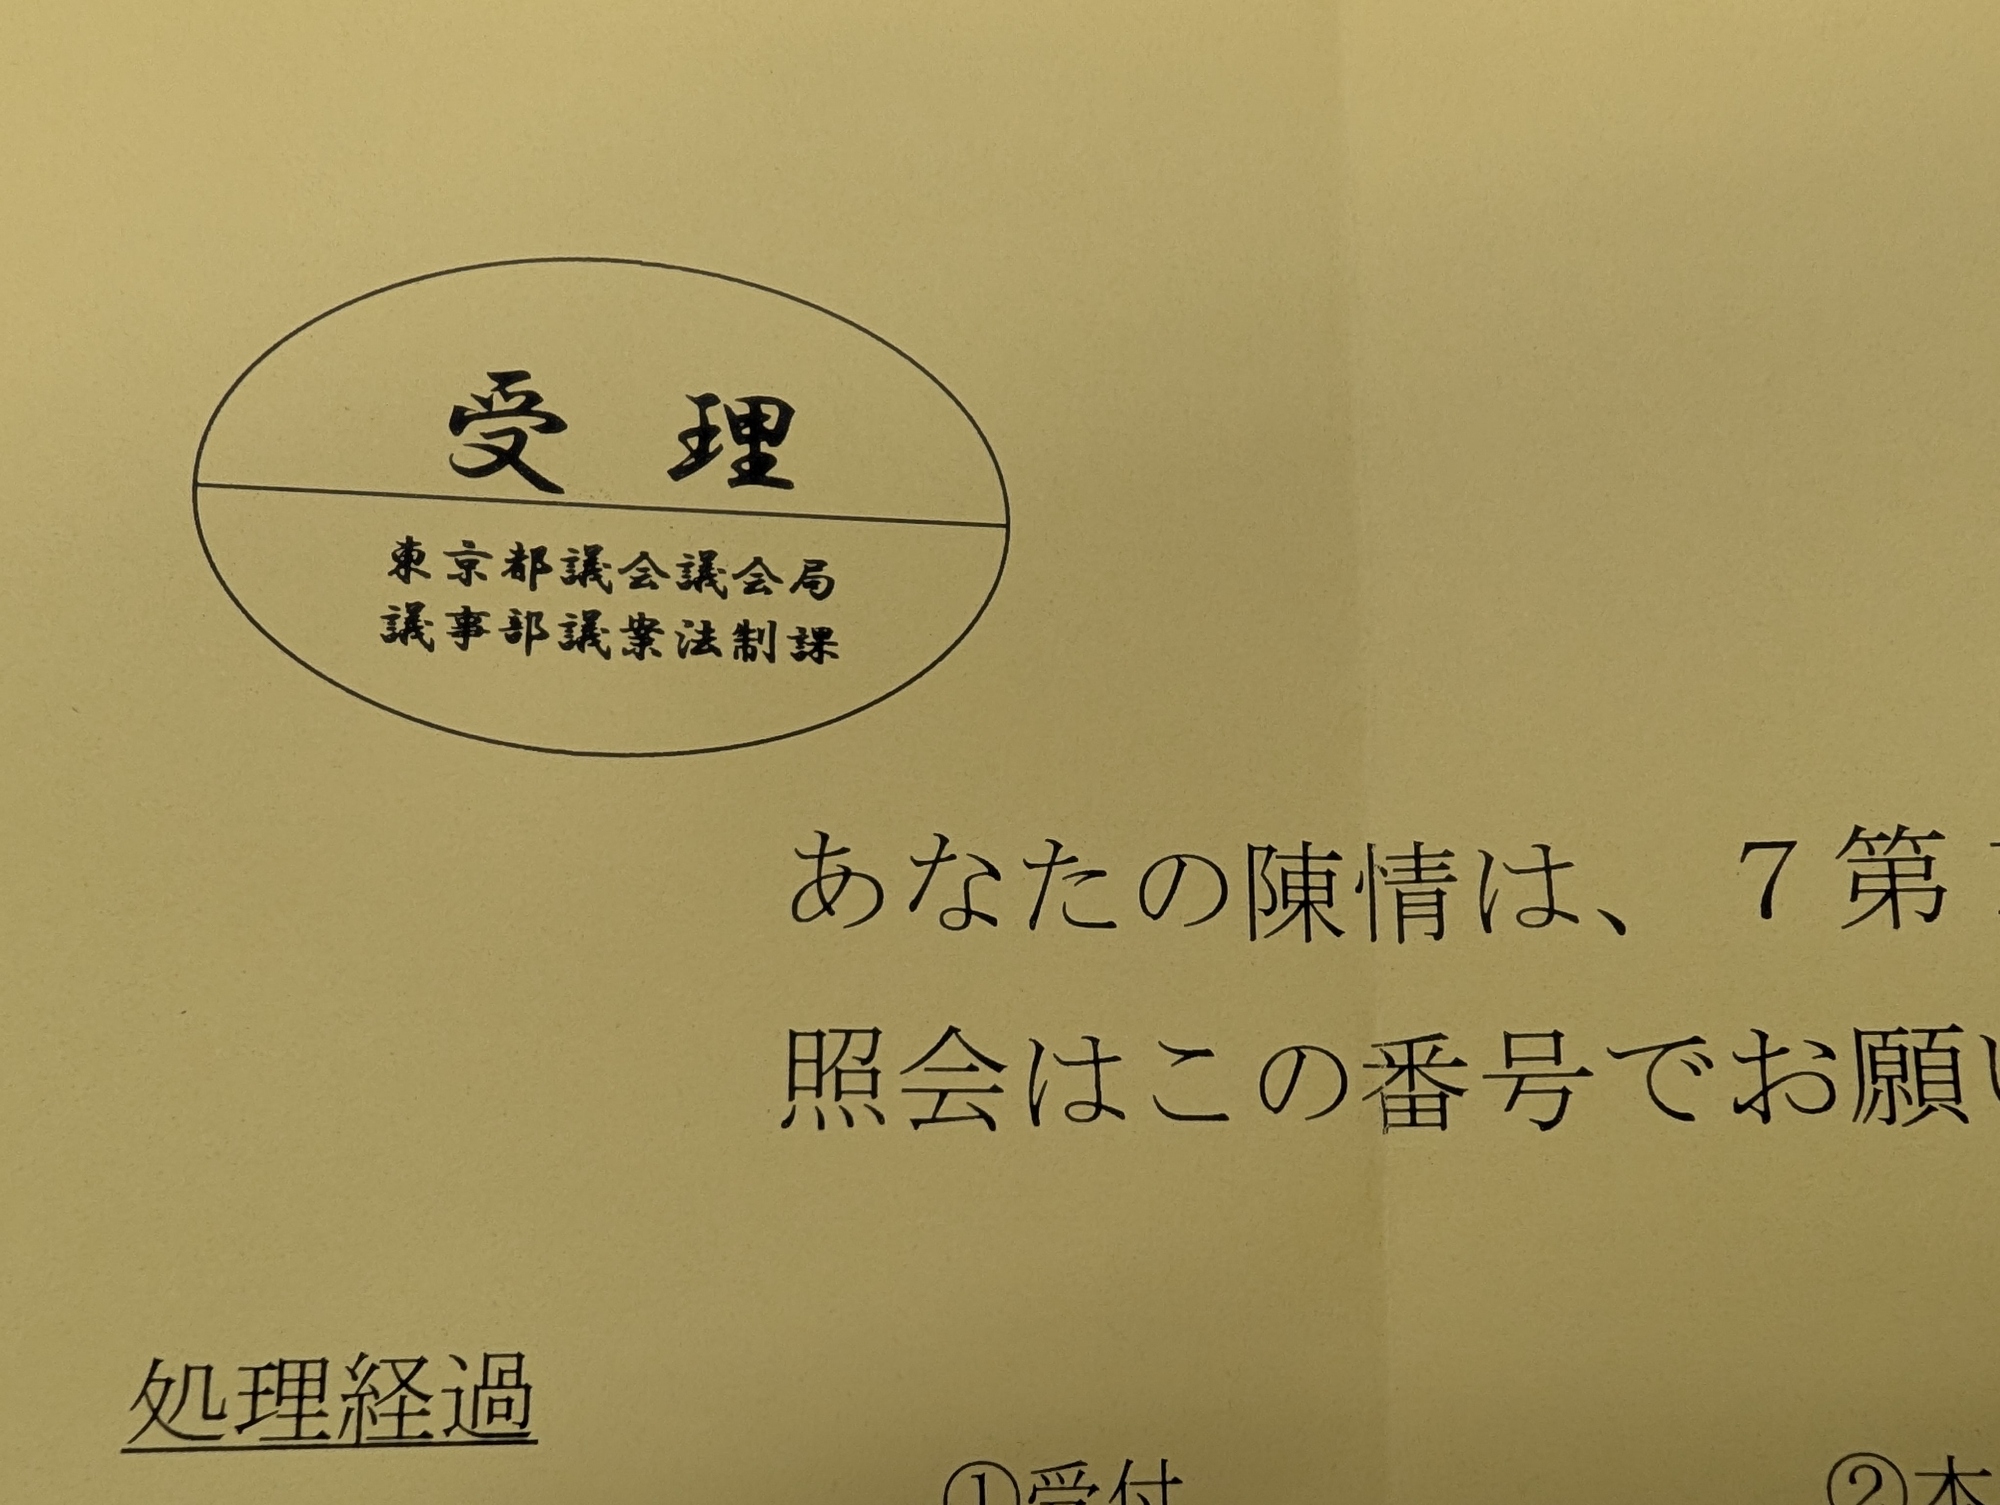 受理
東京都議会議会局
議事部議案法制課
あなたの陳情は、７第
照会はこの番号でお願い
処理経過
①受付
②